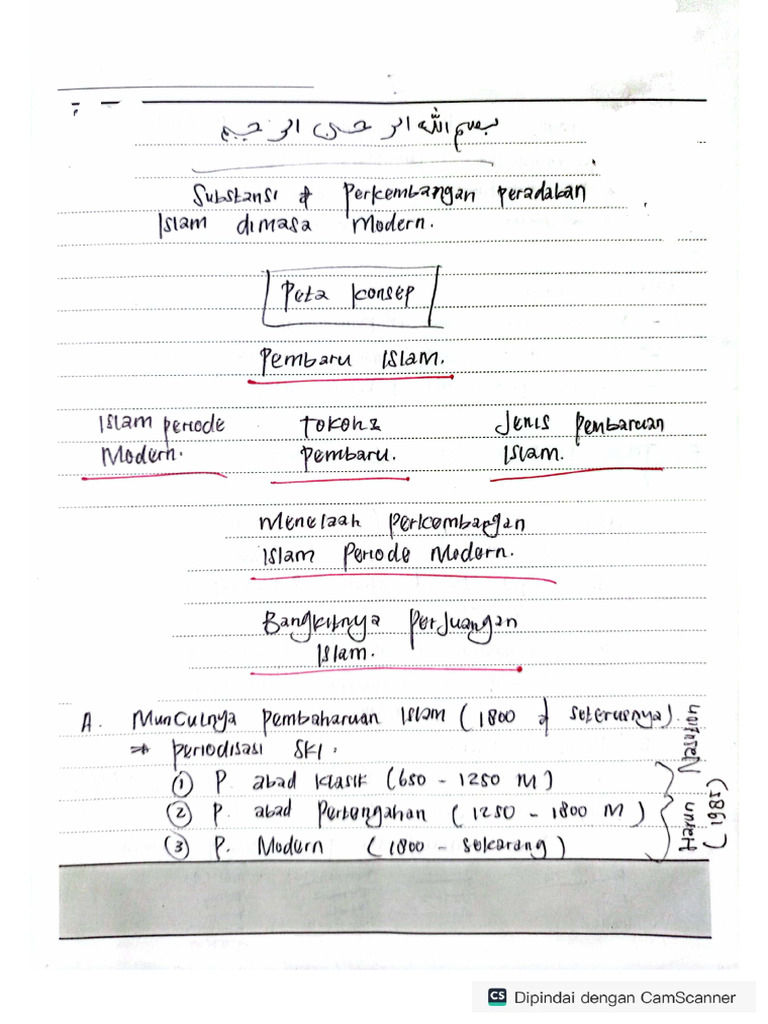 بسم الله الرحمن الرحيم
Substansi & Perkembangan peradaban
Islam dimasa Modern.
Peta Konsep
Pembaru Islam.
Islam periode Modern.
Tokoh2 Pembaru.
Jenis Pembaruan Islam.
Menelaah Perkembangan
Islam Periode Modern.
Bangkitnya Perjuangan
Islam.
A. Munculnya Pembaharuan Islam (1800 & seterusnya).
⇒ periodisasi SKI.
① P. abad Klasik (650 - 1250 M)
② P. abad Pertengahan (1250 - 1800 M)
③ P. Modern (1800 - sekarang)
Harun Nasution
(1985)
CS Dipindai dengan CamScanner